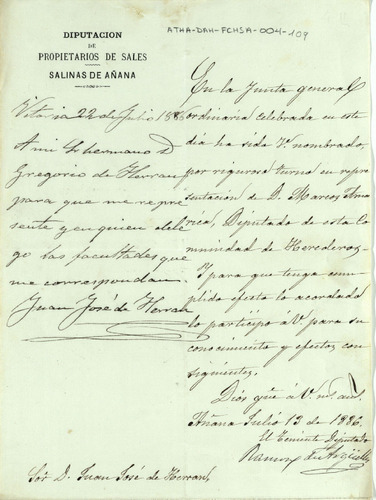 ATHA-DAH-FCHSA-004-109
DIPUTACION
DE
PROPIETARIOS DE SALES
SALINAS DE AÑANA
Vitoria 22 de Julio 1886
A mi hermano D
Gregorio de Herran
para que me repre
sente y en quien dele
go las facultades que
me correspondan.
Juan José de Herran
En la Junta general
ordinaria celebrada en este
dia ha sido V. nombrado,
por riguroso turno en repre
sentacion de D. Marcos Ama
rica, Diputado de esta Co
munidad de Herederos.
Y para que tenga cum
plido efecto lo acordado
lo participo á V. para su
conocimiento y efectos con
siguientes.
Dios gue á V. ms. as.
Añana Julio 13 de 1886.
El Teniente Diputado
Ramon de
Sor. D. Juan José de Herran.